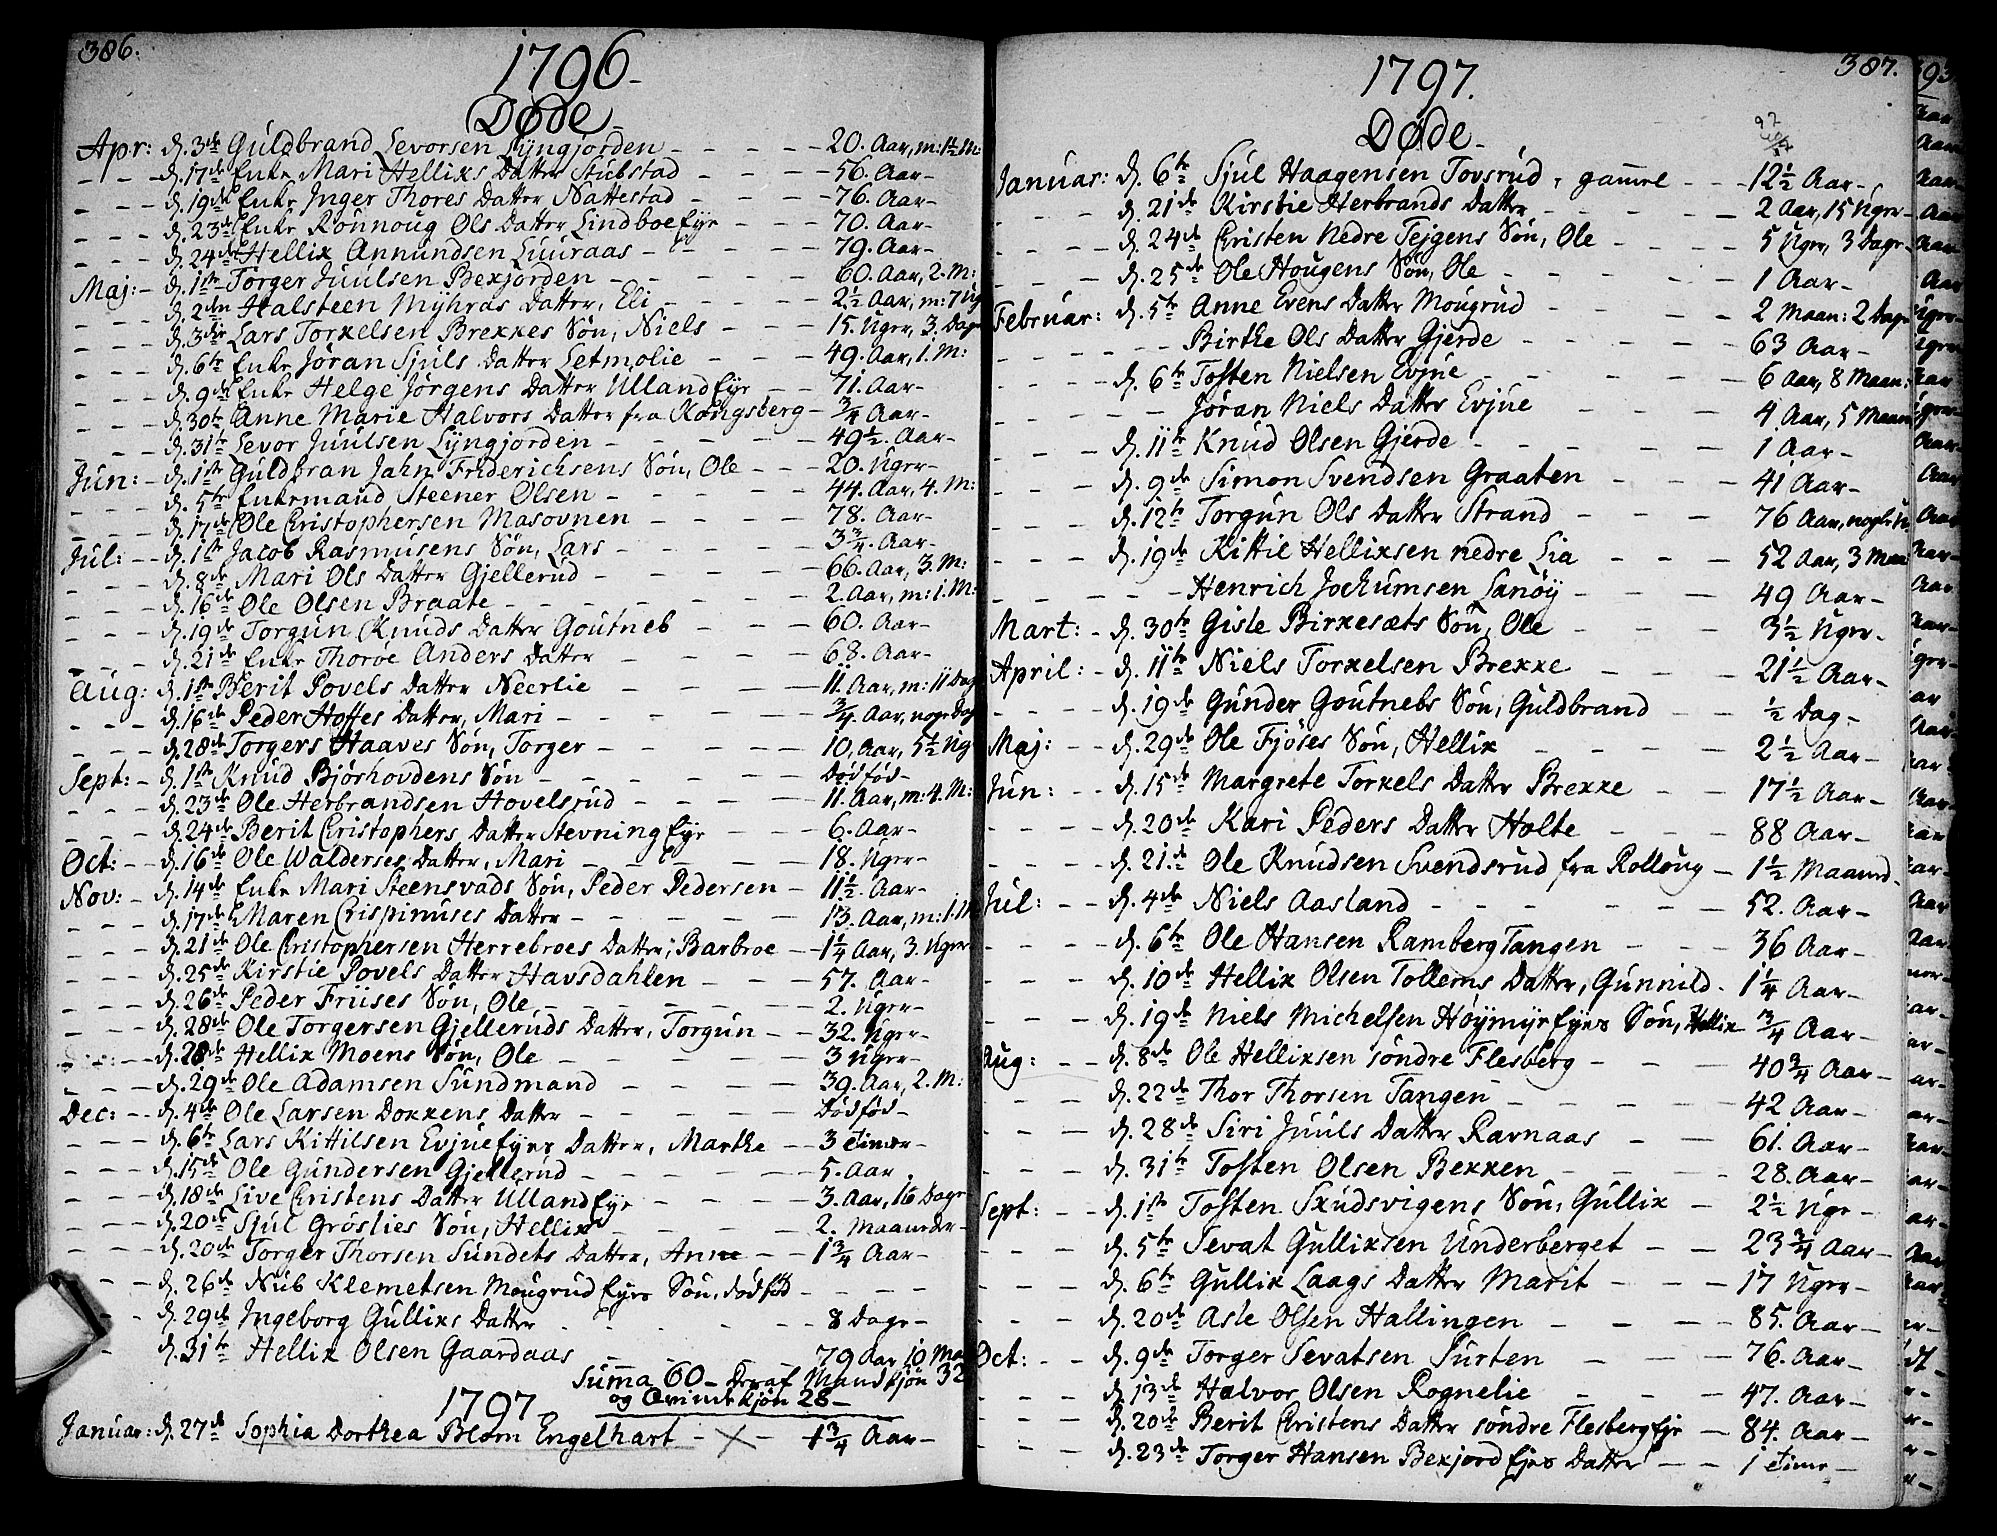 386.
1796.
Døde
Apr: d. 3de Guldbrand Levorsen Lyngjorden - 20. Aar, m: 1½ M:
d. 17de Enke Mari Hellixs Datter Stubstad - 56. Aar
d. 19de Enke Inger Thores Datter Nattestad - 76. Aar
d. 23de Enke Rønnoug Ols Datter Lindboe Eye - 70. Aar
d. 24de Hellix Annundsen Luuraas - 79. Aar
Maj: d. 1ste Torger Juulsen Bexjorden - 60. Aar, 2. M:
d. 2den Halsteen Myhras Datter, Eli - 2½ Aar, m: 7 Ug
d. 3die Lars Torkelsen Brekkes Søn, Niels - 15. Uger, 3. Dage
d. 6te Enke Jøran Sjuls Datter Letmolie - 49. Aar, 1. M:
d. 9de Enke Helge Jørgens Datter Ulland Eye - 71. Aar
d. 30te Anne Marie Halvors Datter fra Kongsberg - ¾ Aar
d. 31te Levor Juulsen Lyngjorden - 49½. Aar
Jun: d. 1ste Guldbran Jahn Friderichsens Søn, Ole - 20. Uger
d. 5te Enkemand Steener Olsen - 44. Aar, 4. M:
d. 17de Ole Cristophersen Masovnen - 78. Aar
Jul: d. 1ste Jacob Rasmusens Søn, Lars - 3¾. Aar
d. 8de Mari Ols Datter Gjellerud - 66. Aar, 3. M:
d. 16de Ole Olsen Braate - 2. Aar, m: 1. M:
d. 19de Torgun Knuds Datter Goutneb - 60. Aar
d. 21de Enke Thoroe Anders Datter - 68. Aar
Aug: d. 1ste Berit Povels Datter Neerlie - 11. Aar, m: 11 Dag
d. 16de Peder Hoffes Datter, Mari - ¾. Aar, nogr Dag
d. 28de Torgers Haaves Søn, Torger - 10. Aar, 5½ Ug
Sept: d. 1ste Knud Bjørhovdens Søn - Dødfød
d. 23de Ole Herbrandsen Hovelsrud - 11. Aar, m: 4. M:
d. 24de Berit Cristophers Datter Stevning Eye - 6. Aar
Oct: d. 16de Ole Walderses Datter, Mari - 18. Uger
Nov: d. 14de Enke Mari Steensvads Søn, Peder Pedersen - 11½. Aar
d. 17de Maren Crispinuses Datter - 13. Aar, m: 1. M
d. 21de Ole Cristophersen Herrebroes Datter, Barbroe - 1¼ Aar, 3. Uger
d. 25de Kirstie Povels Datter Havsdahlen - 57. Aar
d. 26de Peder Friises Søn, Ole - 2. Uger
d. 28de Ole Torgersen Gjelleruds Datter, Torgun - 32. Uger
d. 28de Hellix Moens Søn, Ole - 3 Uger
d. 29de Ole Adamsen Sundmand - 39. Aar, 2. M:
Dec: d. 4de Ole Larsen Dokkens Datter - Dødfød
d. 6te Lars Kittilsen Evjue Eyes Datter, Marthe - 3 Timer
d. 15de Ole Gundersen Gjellerud - 5. Aar
d. 18de Live Cristens Datter Ulland Eye - 3. Aar, 16 Dage
d. 20de Sjul Grøslies Søn, Hellix - 2. Maaneder
d. 20de Torger Thorsen Sundets Datter, Anne - 1¾ Aar
d. 26de Nub Klemetsen Mougrud Eyes Søn, dødfød
d. 29de Ingeborg Gullixs Datter - 8 Dage
d. 31te Hellix Olsen Gaardaas - 79 Aar 10 Maa
Summa 60 Deraf Mandkjøn 32
og Qvindekjøn 28
1797
Januar: d. 27de Sophia Dorthea Blom Engelhart - X - 1¾ Aar
387.
1797.
Døde
Januar: d. 6te Sjul Haagensen Tovsrud, gammel - 12½ Aar
d. 21de Kirstie Herbrands Datter - 2 Aar, 15 Uger
d. 24de Cristen Nedre Tejgens Søn, Ole - 5 Uger, 3 Dage
d. 25de Ole Hougens Søn, Ole - 1 Aar
Februar: d. 5te Anne Evens Datter Mougrud - 2 Maan: 2 Dage
Birthe Ols Datter Gjerde - 63 Aar
d. 6te Tosten Nielsen Evjue - 6 Aar, 8 Maan:
Jøran Niels Datter Evjue - 4 Aar, 5 Maan
d. 11te Knud Olsen Gjerde - 1 Aar
d. 9de Simon Svendsen Graaten - 41 Aar
d. 12te Torgun Ols Datter Strand - 76 Aar, nogle U
d. 19de Kittil Hellixsen nedre Lia - 52 Aar, 3 Maa
Henrich Jochumsen Lanøy - 49 Aar
Mart: d. 30te Gisle Birkesæts Søn, Ole - 3½ Uger
April: d. 11te Niels Torkelsen Brekke - 21½ Aar
d. 19de Gunder Goutnebs Søn, Guldbrand - ½ Dag
Maj: d. 29de Ole Fjøses Søn, Hellix - 2½ Aar
Jun: d. 15de Margrete Torkels Datter Brekke - 17½ Aar
d. 20de Kari Peders Datter Holte - 88 Aar
d. 21de Ole Knudsen Svendsrud fra Rolloug - 1½ Maaned
Jul: d. 4de Niels Aasland - 52. Aar
d. 6te Ole Hansen Ramberg Tangen - 36 Aar
d. 10de Hellix Olsen Tollems Datter, Gunnild - 1¼ Aar
d. 19de Niels Michelsen Høymyr Eyes Søn, Hellix - ¾ Aar
Aug: d. 8de Ole Hellixsen søndre Flesberg - 40¾ Aar
d. 22de Thor Thorsen Tangen - 42 Aar
d. 28de Siri Juuls Datter Ravnaas - 61. Aar
d. 31te Tosten Olsen Bekken - 28. Aar
Sept: d. 1ste Tosten Skudsvigens Søn, Gullix - 2½ Uge
d. 5te Sevat Gullixsen Underberget - 23¾ Aar
d. 6te Gullix Laags Datter Marit - 17 Uger
d. 20de Asle Olsen Hallingen - 85. Aar
Oct: d. 9de Torger Sevatsen Surten - 76. Aar
d. 13de Halvor Olsen Rognelie - 47. Aar
d. 20de Berit Cristens Datter søndre Flesberg Eje - 84. Aar
d. 23de Torger Hansen Bexjord Ejes Datter - 1 Time